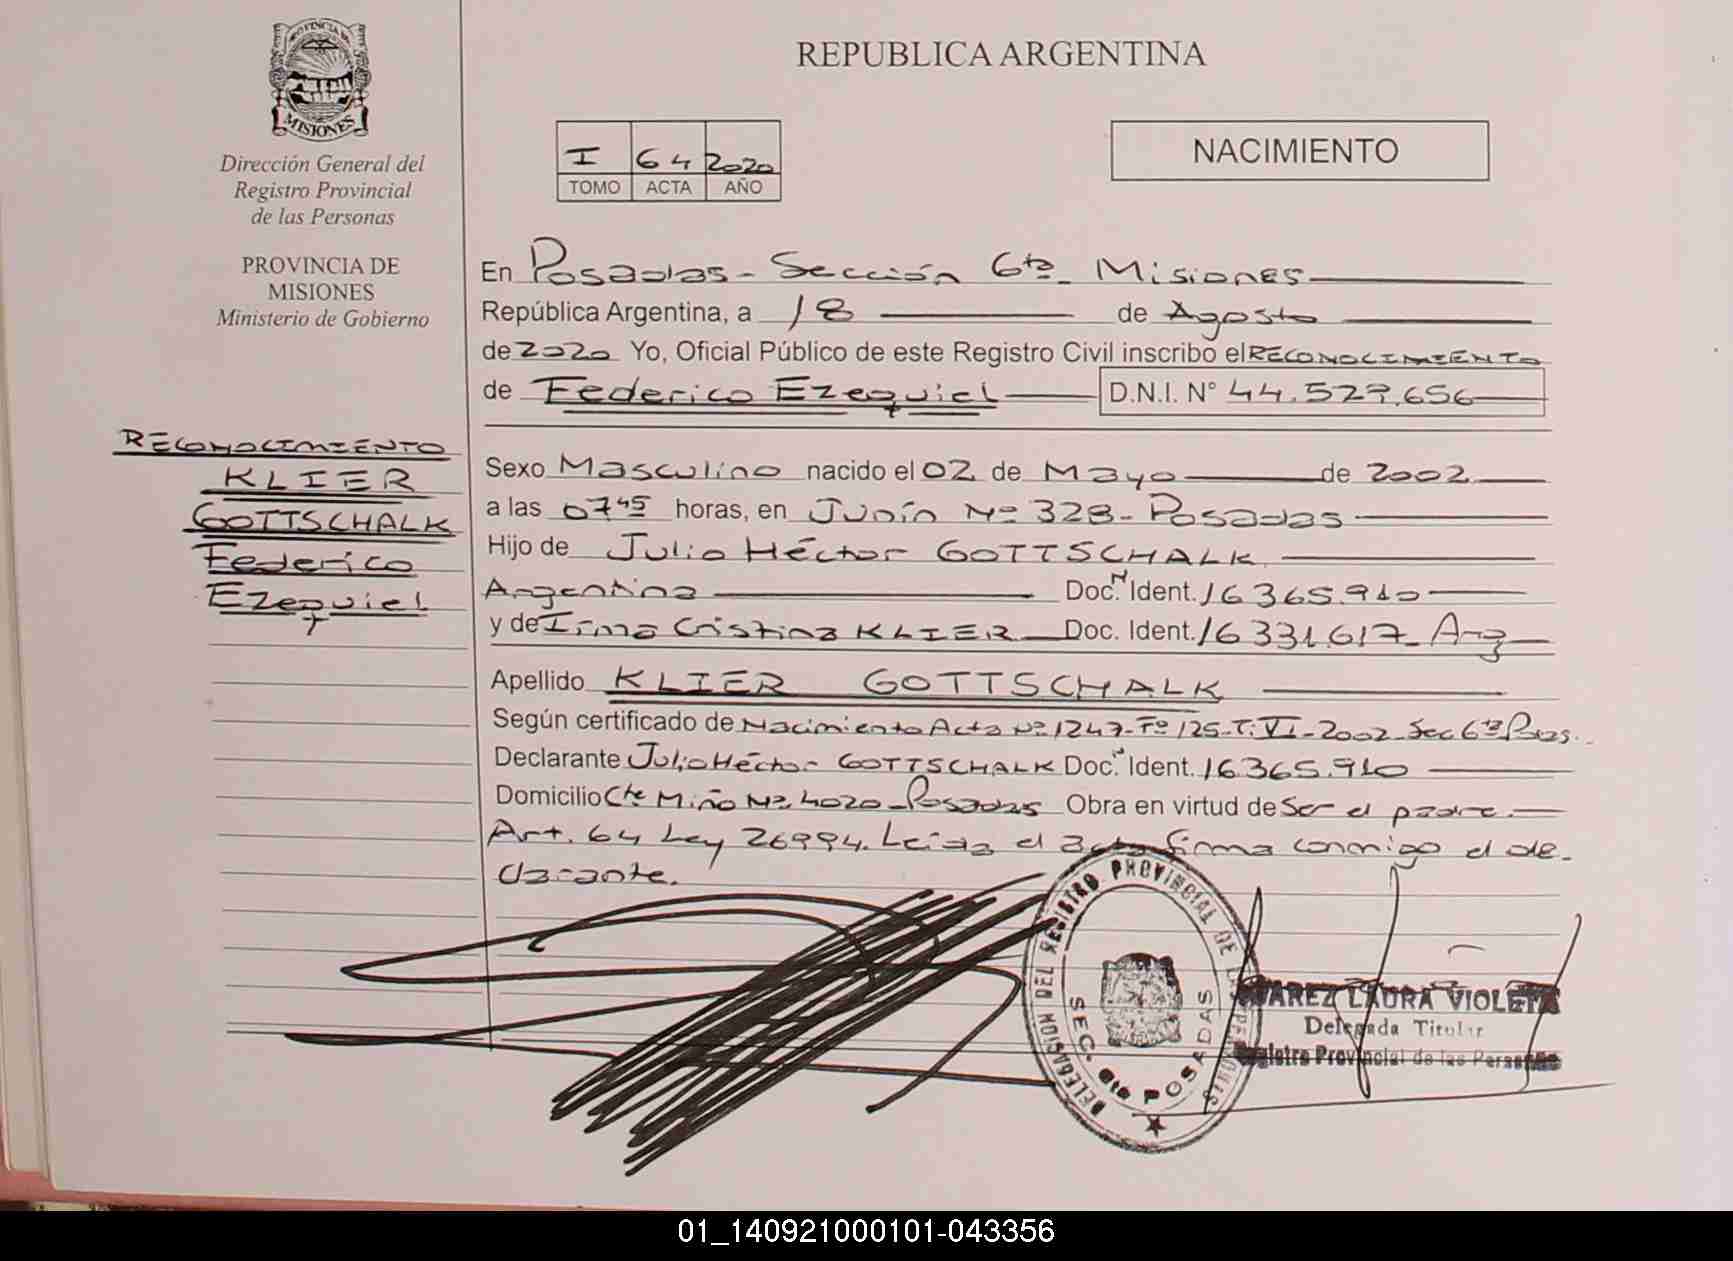 PROVINCIA DE
MISIONES
Dirección General del
Registro Provincial
de las Personas
PROVINCIA DE
MISIONES
Ministerio de Gobierno
REPUBLICA ARGENTINA
I 64 2020
TOMO ACTA AÑO
NACIMIENTO
En Posadas - Sección 6ta - Misiones
República Argentina, a 18 de Agosto
de 2020 Yo, Oficial Público de este Registro Civil inscribo el RECONOCIMIENTO
de Federico Ezequiel D.N.I. N° 44.527.656
RECONOCIMIENTO
KLIER
GOTTSCHALK
Federico
Ezequiel
Sexo Masculino nacido el 02 de Mayo de 2002
a las 07 45 horas, en Junín Nº 328 - Posadas
Hijo de Julio Héctor GOTTSCHALK
Argentina Doc. Ident. 16365.910
y de Irma Cristina KLIER Doc. Ident. 16331.617 - Arg
Apellido KLIER GOTTSCHALK
Según certificado de Nacimiento Acta Nº 1247 - Fº 125 - T: VI - 2002 - Sec 6ta Pdas.
Declarante Julio Héctor GOTTSCHALK Doc. Ident. 16365.910
Domicilio Cte Miño Nº 4020 - Posadas Obra en virtud de Ser el padre.
Art. 64 Ley 26994. Leída el acta firma conmigo el de-
clarante.
DELEGACION DEL REGISTRO PROVINCIAL DE LAS PERSONAS
SEC. 6ta POSADAS
LAURA VIOLETA
Delegada Titular
Registro Provincial de las Personas
01_140921000101-043356